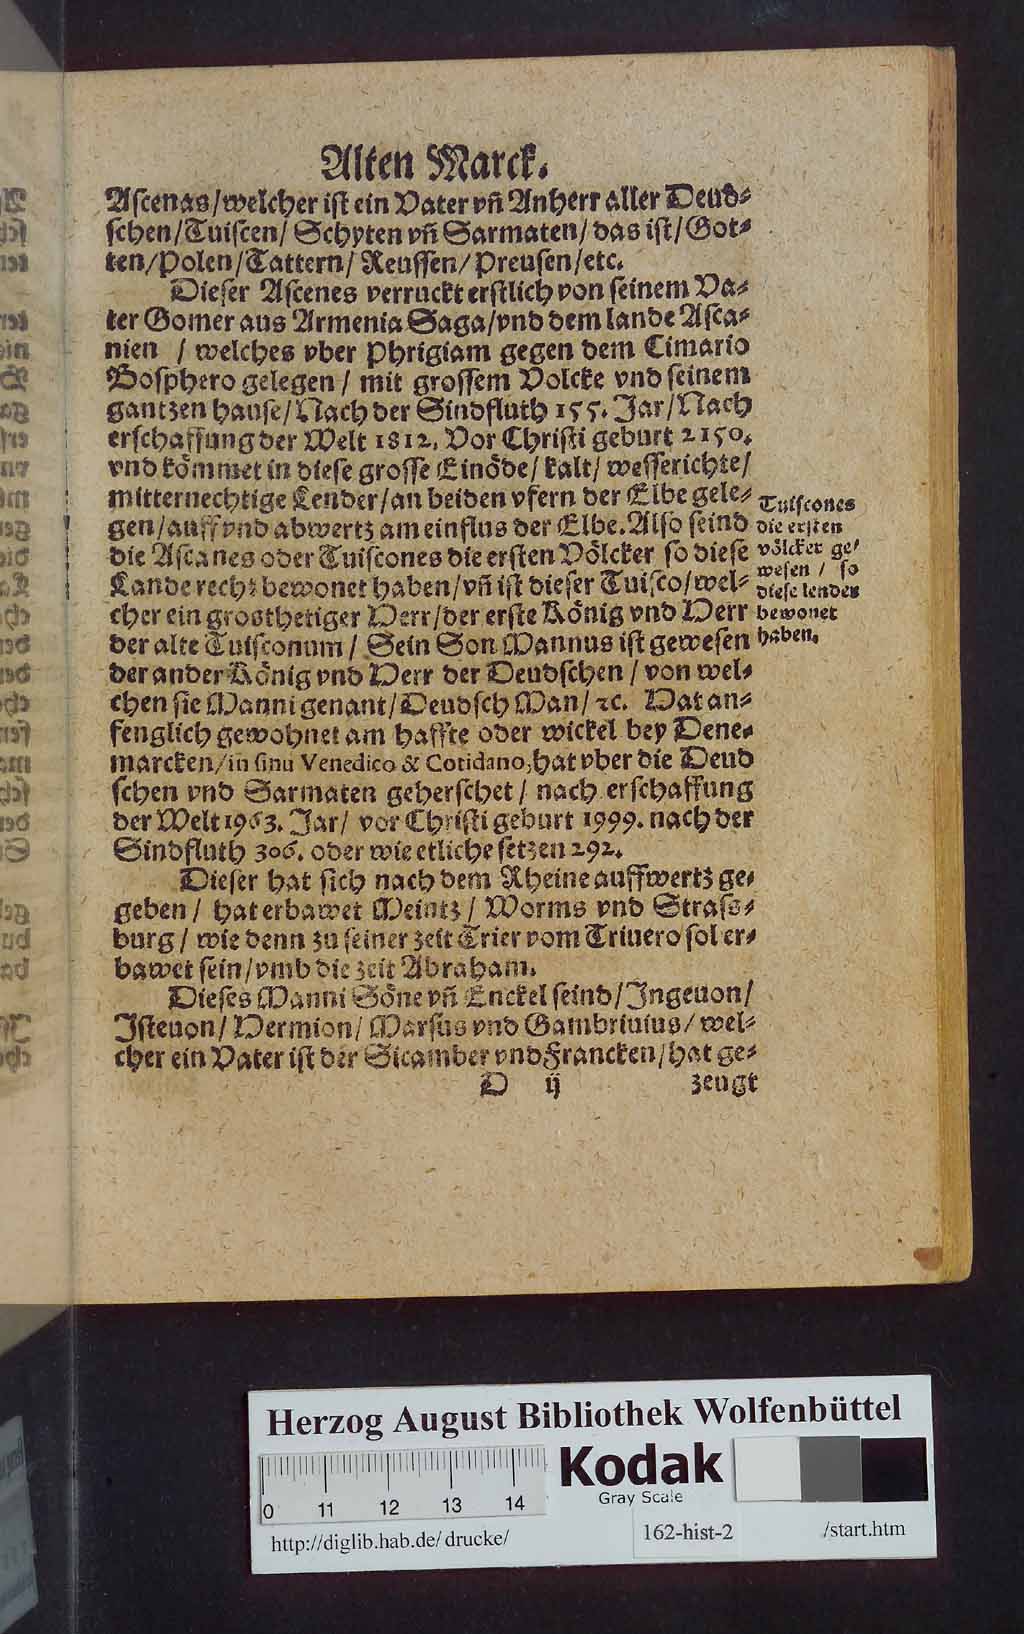 Alten Marck.
Aſcenas/welcher iſt ein Vater vñ Anherr aller Deud⸗
ſchen/Tuiſcen/ Schyten vñ Sarmaten/ das iſt/ Got⸗
ten/Polen/Tattern/ Reuſſen/ Preuſen/etc.
Dieſer Aſcenes verruckt erſtlich von ſeinem Va⸗
ter Gomer aus Armenia Saga/vnd dem lande Aſca⸗
nien / welches vber Phrigiam gegen dem Cimario
Boſphero gelegen / mit groſſem Volcke vnd ſeinem
gantzen hauſe/ Nach der Sindfluth 155. Jar/ Nach
erſchaffung der Welt 1812. Vor Chriſti geburt 2150.
vnd kömmet in dieſe groſſe Einöde/ kalt/ weſſerichte/
mitternechtige Lender/an beiden vfern der Elbe gele⸗
gen/auff vnd abwertz am einflus der Elbe. Alſo ſeind
die Aſcanes oder Tuiſcones die erſten Völcker ſo dieſe
Lande recht bewonet haben/vñ iſt dieſer Tuiſco/wel⸗
cher ein grosthetiger Herr/der erſte König vnd Herr
der alte Tuiſconum / Sein Son Mannus iſt geweſen
der ander König vnd Herr der Deudſchen / von wel⸗
chen ſie Manni genant/ Deudſch Man/ ꝛc. Hat an⸗
fenglich gewohnet am haffte oder wickel bey Dene⸗
marcken/in ſinu Venedico & Cotidano, hat vber die Deud
ſchen vnd Sarmaten geherſchet / nach erſchaffung
der Welt 1963. Jar/ vor Chriſti geburt 1999. nach der
Sindfluth 306. oder wie etliche ſetzen 292.
Dieſer hat ſich nach dem Rheine auffwertz ge⸗
geben / hat erbawet Meintz / Worms vnd Straſs⸗
burg / wie denn zu ſeiner zeit Trier vom Triuero ſol er⸗
bawet ſein/vmb die zeit Abraham.
Dieſes Manni Söne vñ Enckel ſeind/ Ingeuon/
Iſteuon/ Hermion/ Marſus vnd Gambriuius/ wel⸗
cher ein Vater iſt der Sicamber vnd Francken/ hat ge⸗
D ij zeugt
Tuiſcones
die erſten
völcker ge⸗
weſen / ſo
dieſe lender
bewonet
haben.
Herzog August Bibliothek Wolfenbüttel
0 11 12 13 14
Kodak
Gray Scale
http://diglib.hab.de/ drucke/ 162-hist-2 /start.htm